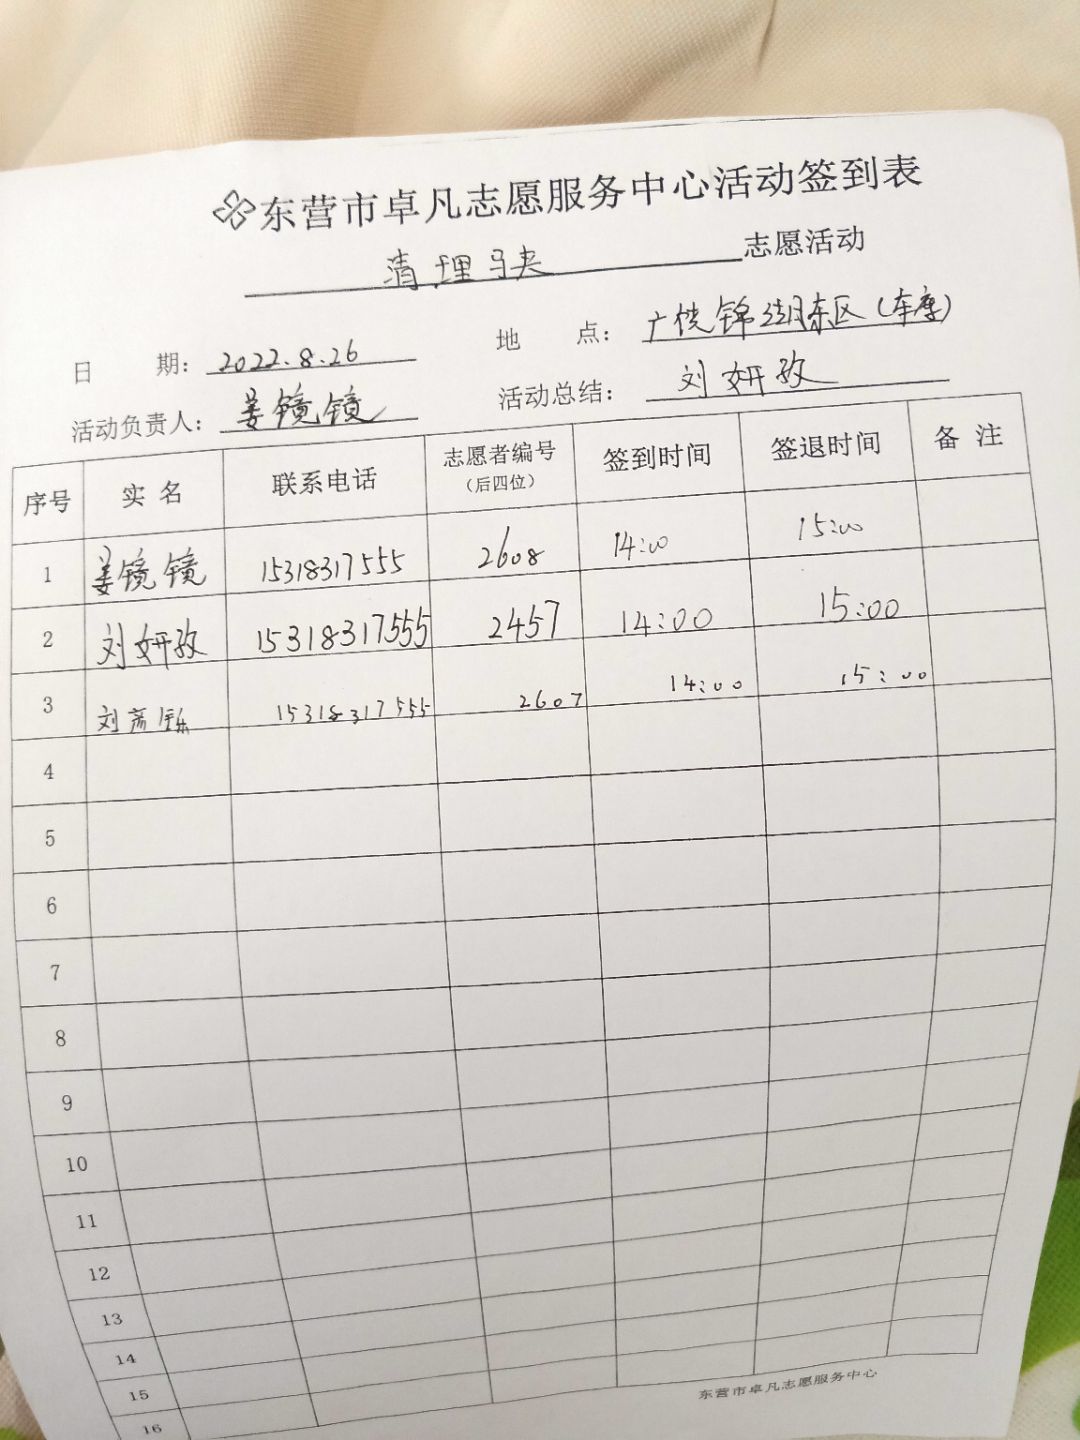 东营市卓凡志愿服务中心活动签到表
清理马夹 志愿活动
日 期: 2022.8.26 地 点: 广饶锦湖东区(车库)
活动负责人: 姜镜镜 活动总结: 刘妍孜
序号 实 名 联系电话 志愿者编号(后四位) 签到时间 签退时间 备 注
1 姜镜镜 15318317555 2608 14:00 15:00
2 刘妍孜 15318317555 2457 14:00 15:00
3 刘彦铄 15318317555 2607 14:00 15:00
4
5
6
7
8
9
10
11
12
13
14
15
16
东营市卓凡志愿服务中心